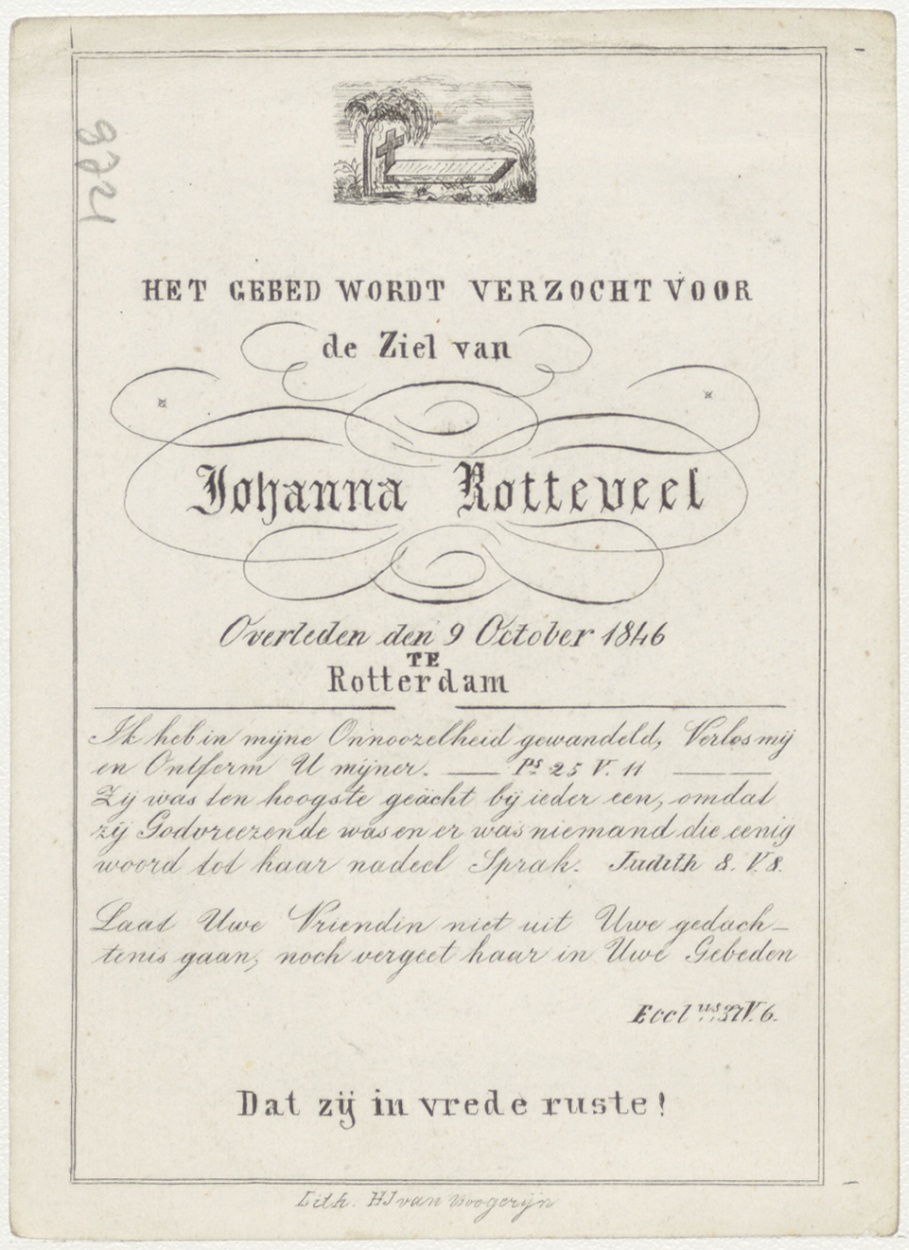 HET GEBED WORDT VERZOCHT VOOR
de Ziel van
Johanna Rotteveel
Overleden den 9 October 1846
TE
Rotterdam
Ik heb in mijne Onnoozelheid gewandeld, Verlos mij
en Ontferm U mijner. — Ps 25 V. 11 — —
Zij was ten hoogste geächt bij ieder een, omdat
zij Godvreezende was en er was niemand die eenig
woord tot haar nadeel Sprak. Judith 8. V. 8.
Laat Uwe Vriendin niet uit Uwe gedach-
tenis gaan, noch vergeet haar in Uwe Gebeden
Ecclus 37 V. 6.
Dat zij in vrede ruste!
Lith. HJ van